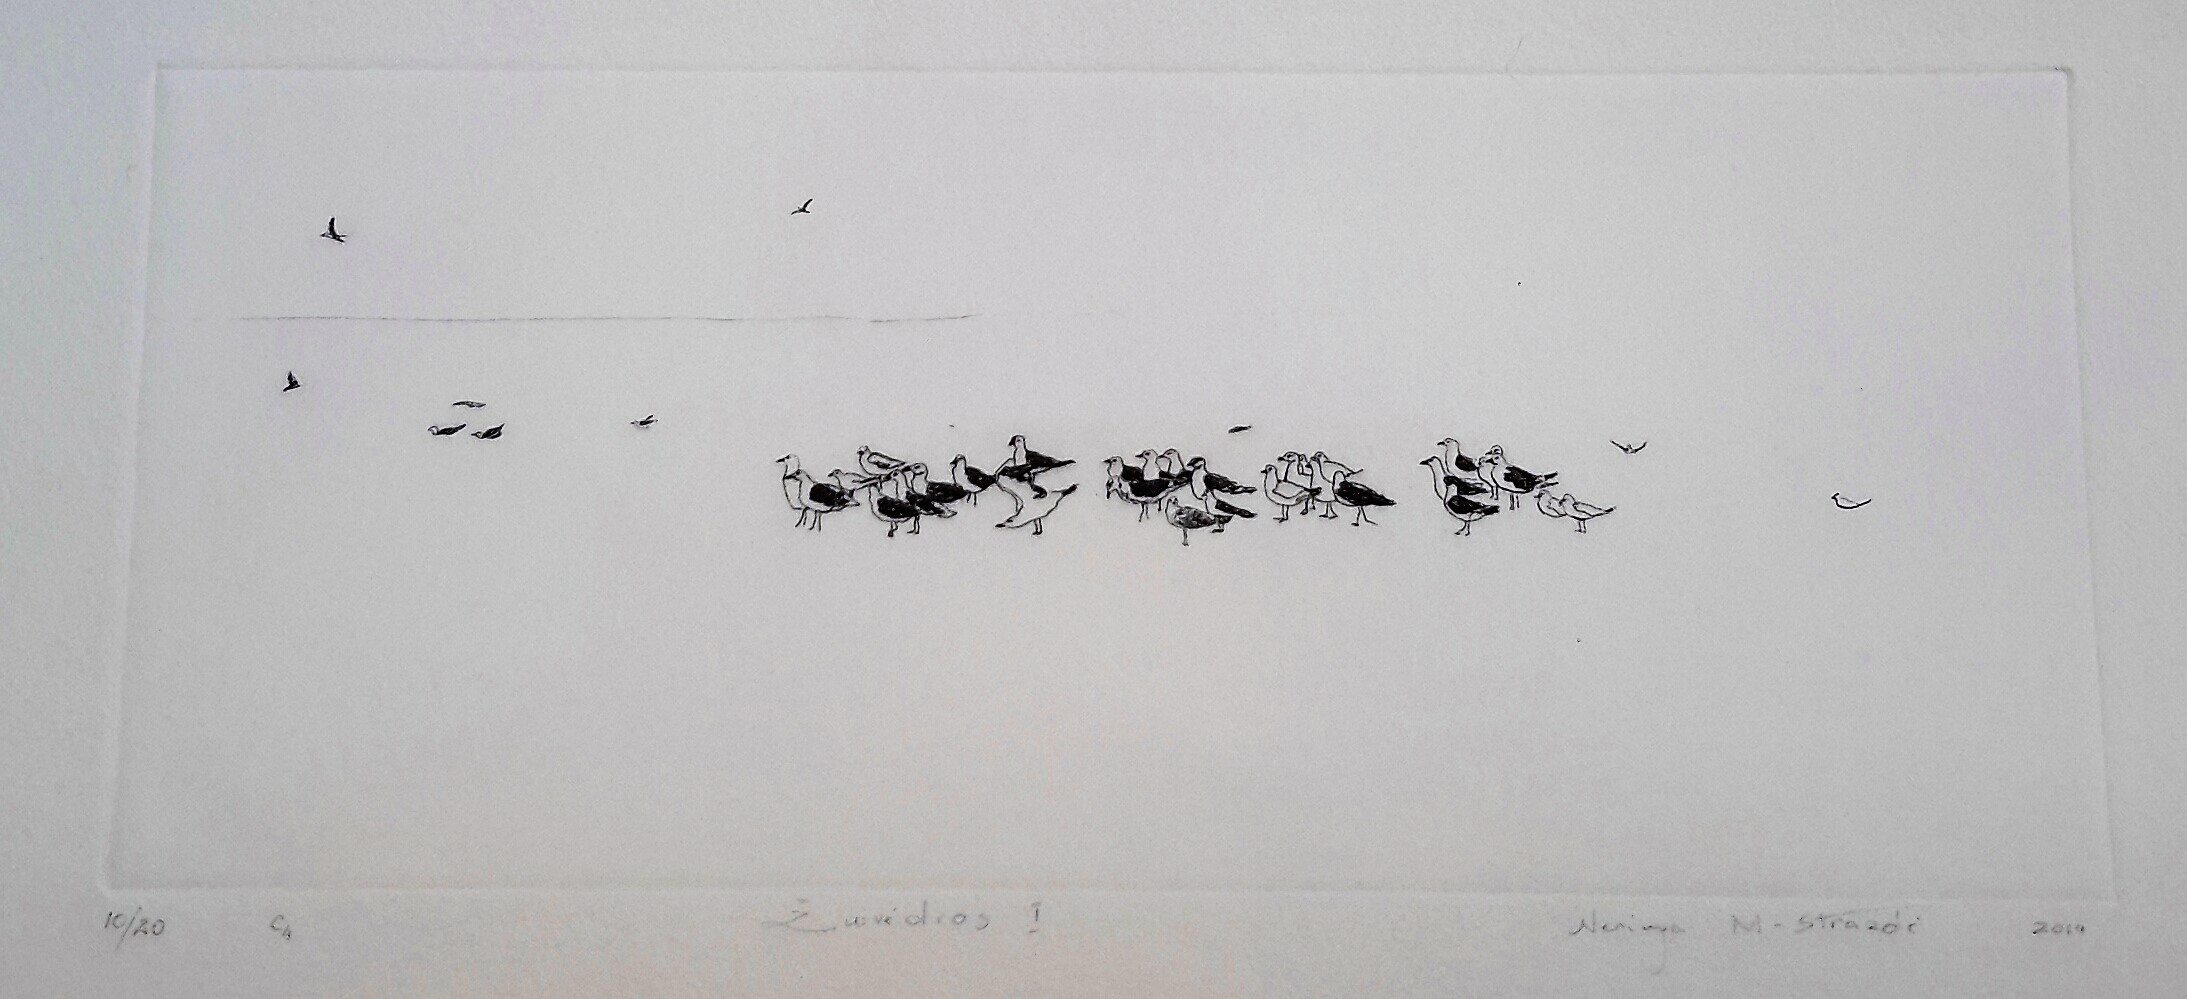 10/20 C4 Žuvėdros I Neringa M-Strazdė 2014